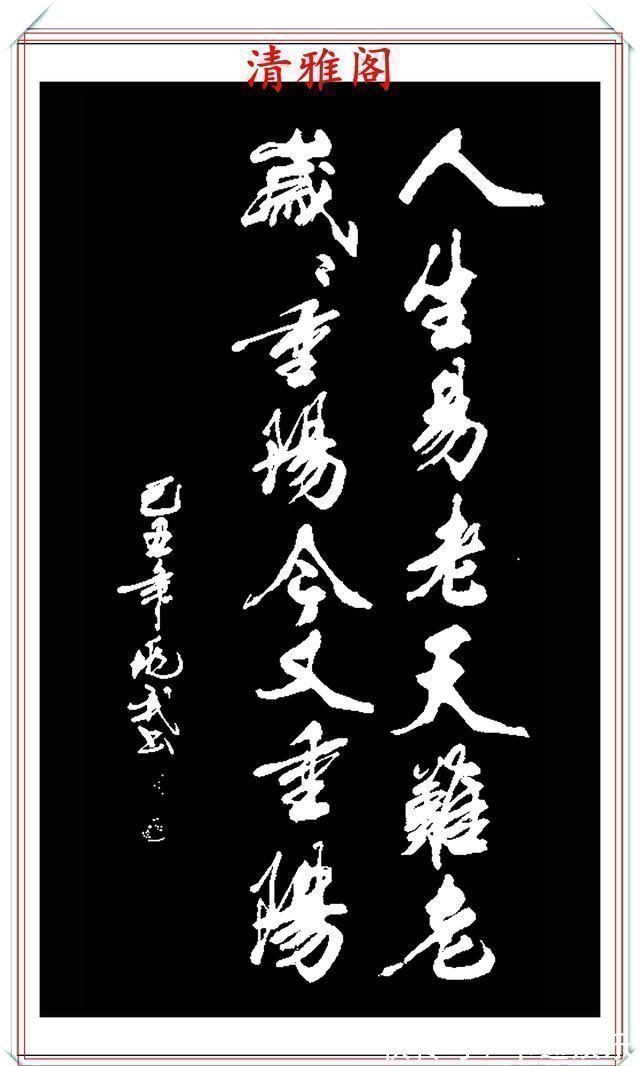 清雅阁
人生易老天難老
歲々重陽今又重陽
己丑年武书